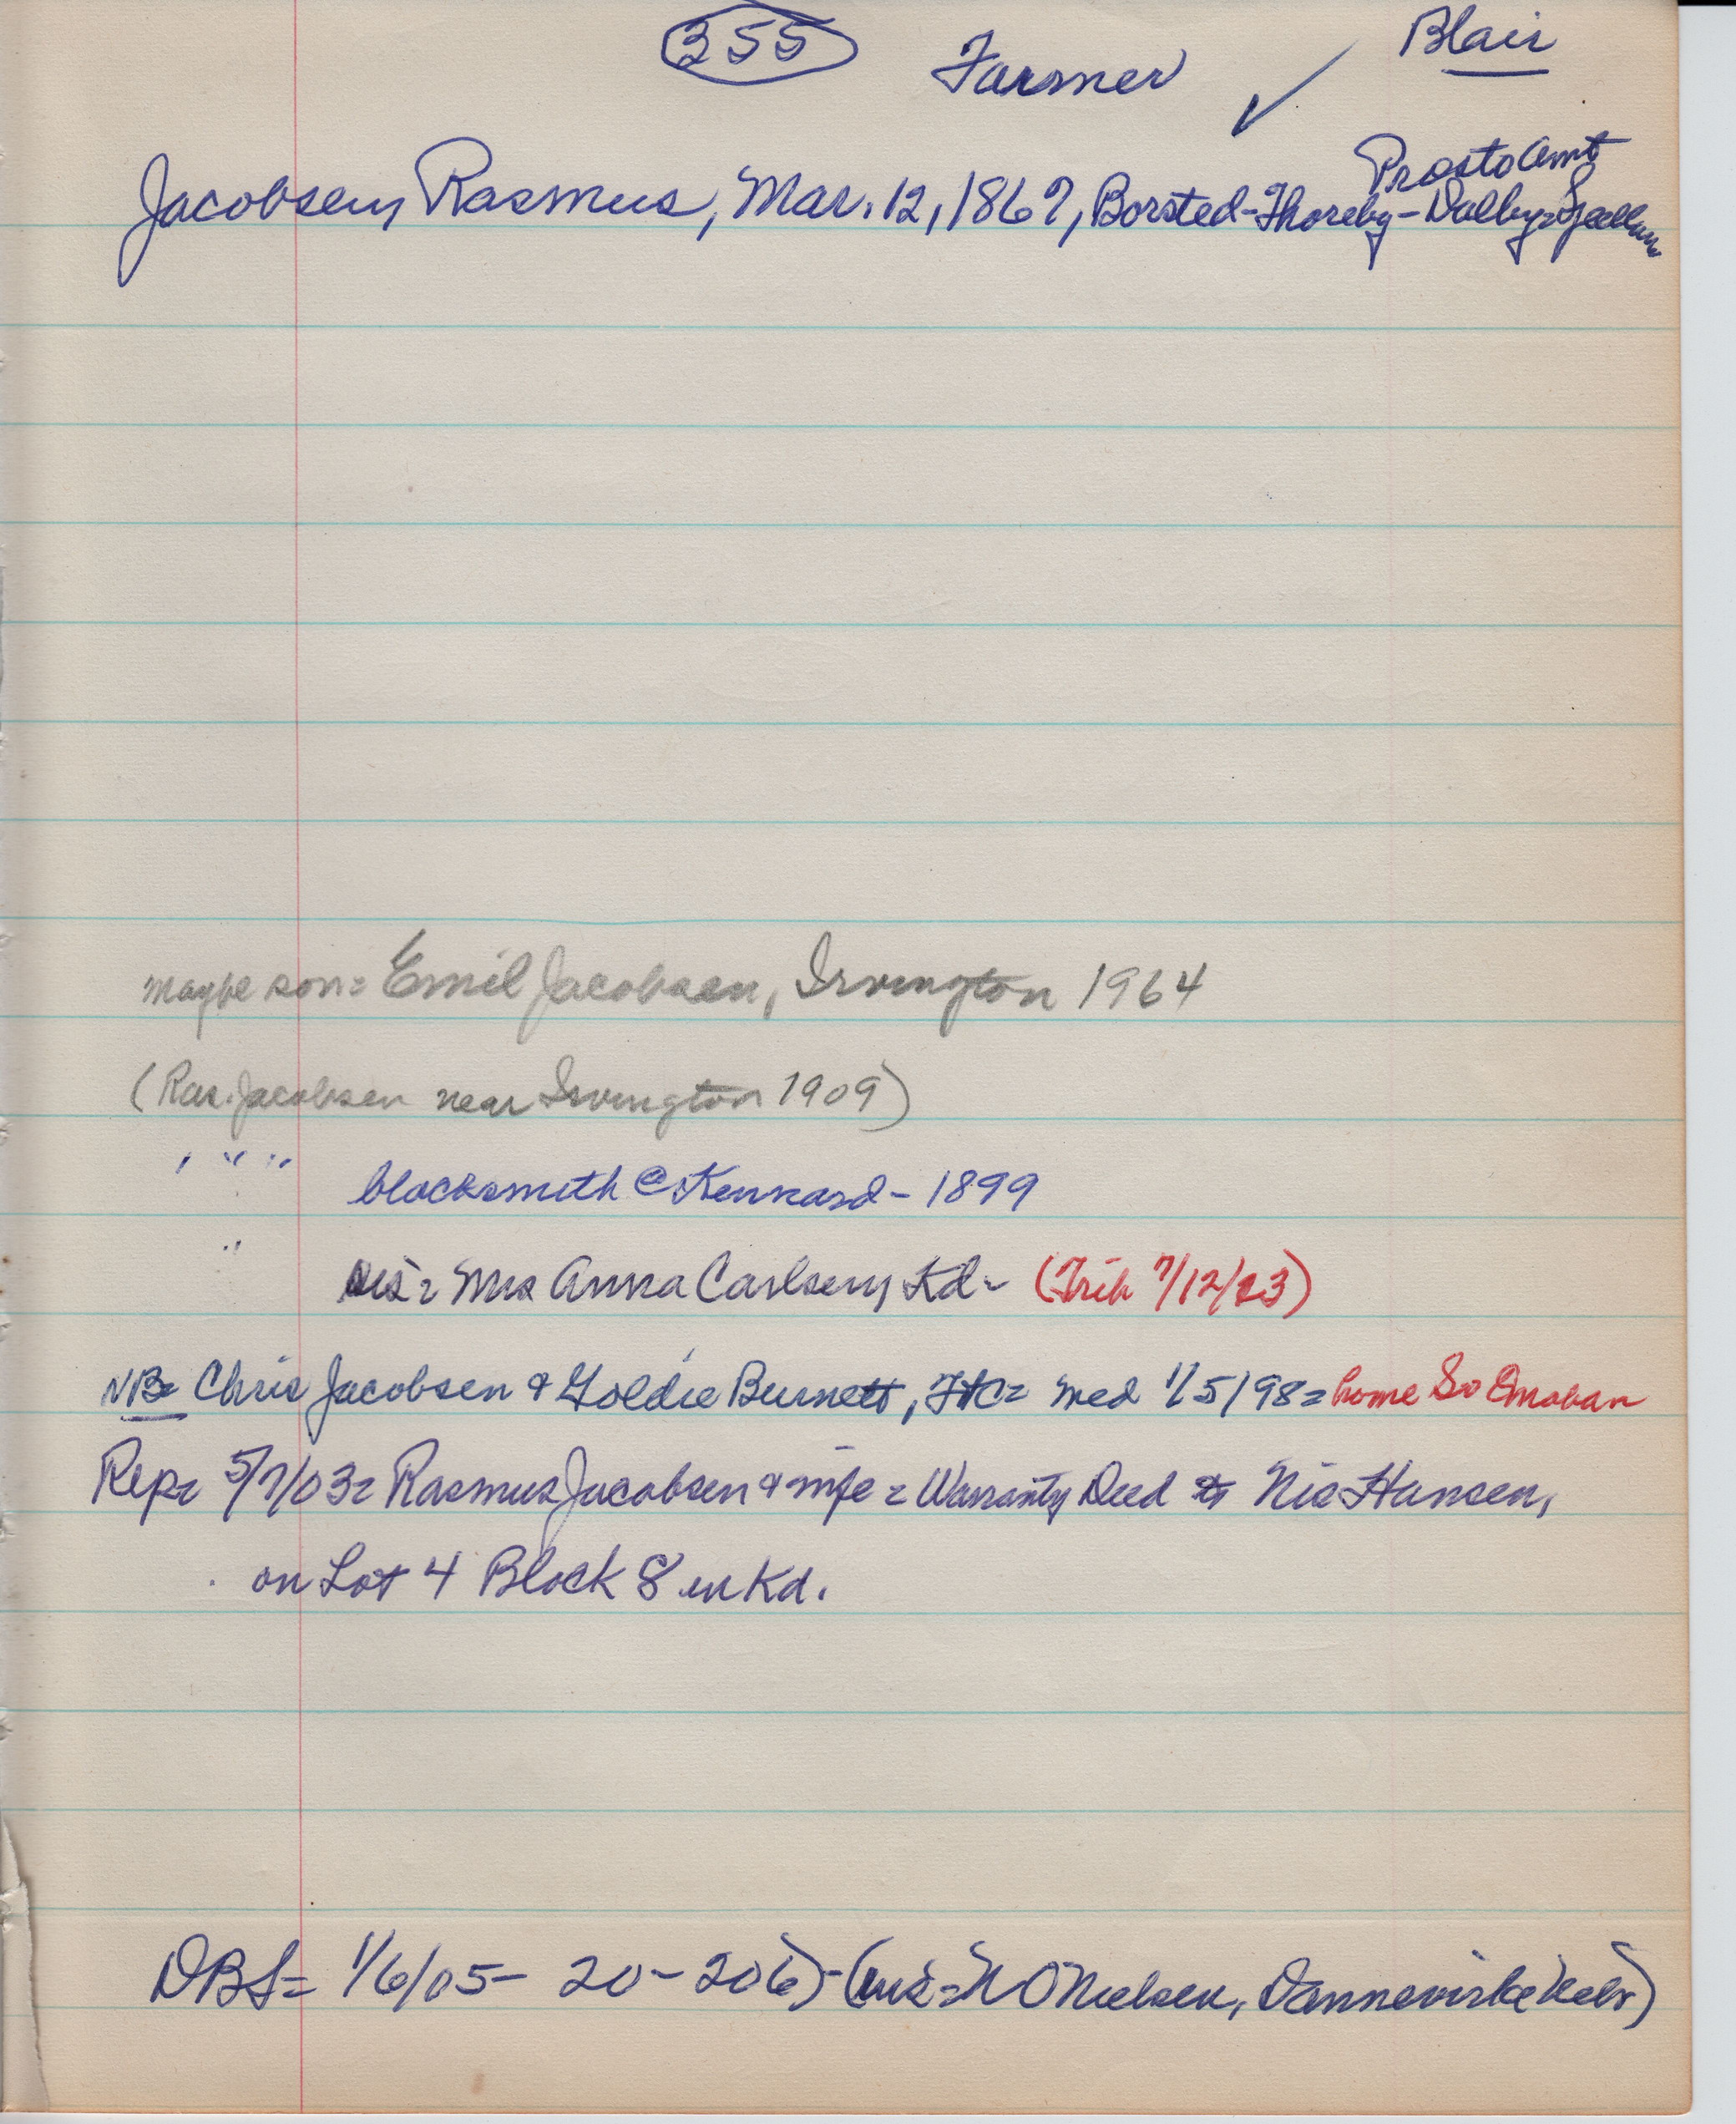 355 Farmer ✓ Blair
Prosto Amt
Jacobsen, Rasmus, Mar. 12, 1867, Borsted-Thoreby-Dalby=Sjaelland
maybe son = Emil Jacobsen, Irvington 1964
(Ras. Jacobsen near Irvington 1909)
" " " blacksmith @ Kennard - 1899
" = Mrs Anna Carlsen, Kd - (Trib 7/12/23)
NB = Chris Jacobsen & Goldie Burnett, = wed 1/5/98 = home So Omahan
Rep = 5/7/03 = Rasmus Jacobsen & wife = Warranty Deed to Nis Hansen,
on Lot 4 Block 8 in Kd.
DBS = 1/6/05 - 20 - 206) - ( = N O Nielsen, Dannevirke Nebr)